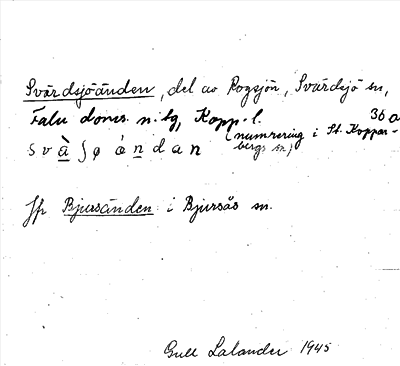 Svärdsjöänden, del av Rogsjön, Svärdsjö sn,
Falu doms. n. tg, Kopp. l. 36a
(numrering i St. Koppar-
bergs sn)
s v à ʃ ø á n d a n
Jfr Bjursänden i Bjursås sn.
Gull Lalander 1945